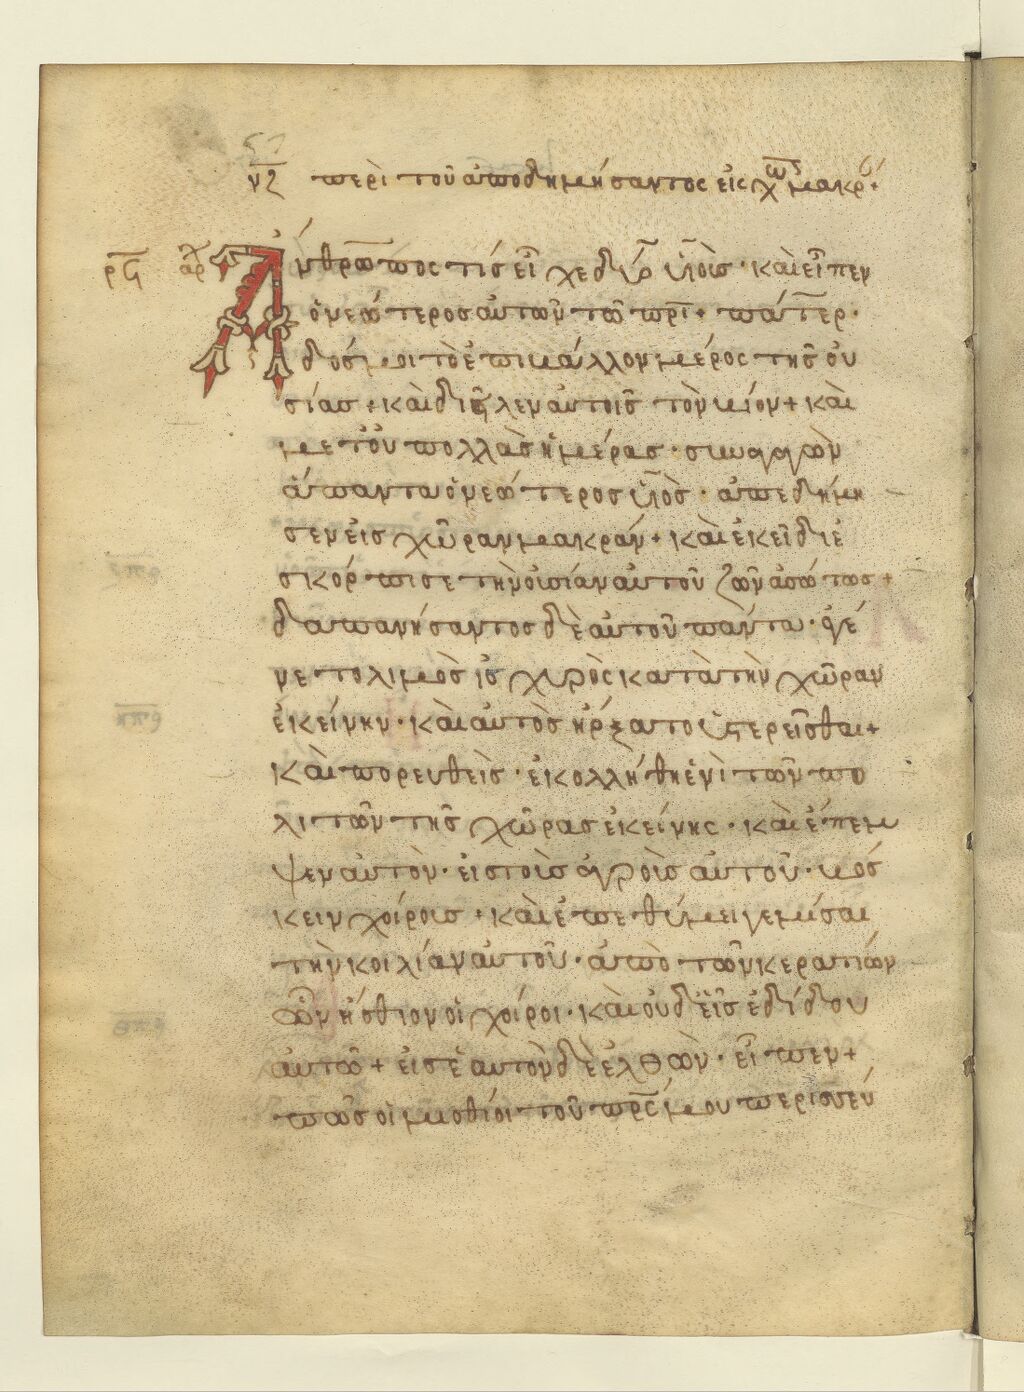 νζ περὶ τοῦ ἀποδημήσαντος εἰς χω μακρ
Ἄνθρωπός τίς εἶχε δύο υἱοὺς· καὶ εἶπεν
ὁ νεώτερος αὐτῶν τῶ πρι+ πάτερ·
δός μοι τὸ ἐπιβάλλον μέρος τῆς οὐ
σίας+ καὶ διεῖλεν αὐτοῖς τὸν βίον+ καὶ
μετ οὐ πολλὰς ἡμέρας· συναγαγὼν
ἅπαντα ὁ νεώτερος υἱὸς· ἀπεδήμη
σεν εἰς χῶραν μακράν+ καὶ ἐκεῖ διε
σκόρπισε τὴν οὐσίαν αὐτοῦ ζῶν ἀσώτως+
δαπανήσαντος δὲ αὐτοῦ πάντα· ἐγέ
νετο λιμὸς ἰσχυρὸς κατὰ τὴν χῶραν
ἐκείνην· καὶ αὐτὸς ἤρξατο ὑστερεῖσθαι+
καὶ πορευθεὶς· ἐκολλήθη ἑνὶ τῶν πο
λιτῶν τῆς χῶρας ἐκείνης· καὶ ἔπεμ
ψεν αὐτὸν· εἰς τοὺς ἀγροὺς αὐτοῦ· βόσ
κειν χοίρους+ καὶ ἐπεθύμει γεμίσαι
τὴν κοιλίαν αὐτοῦ· ἀπὸ τῶν κερατίων
ὧν ἤσθιον οἱ χοίροι· καὶ οὐδεὶς ἐδίδου
αὐτῶ+ εἰς ἑαυτὸν δὲ ἐλθὼν· εἶπεν+
πόσοι μίσθιοι τοῦ πρς μου περισσεύ